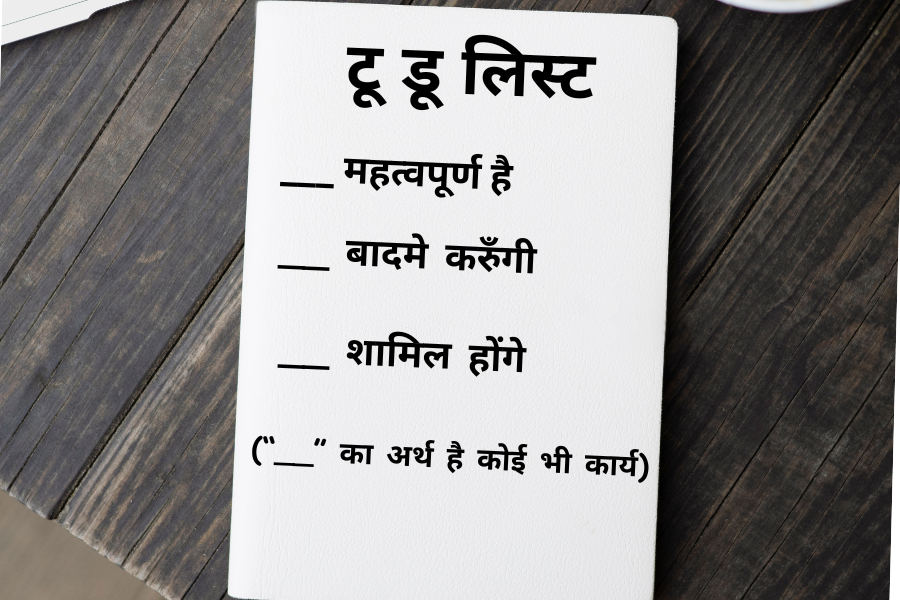 टू डू लिस्ट
___ महत्वपूर्ण है
___ बादमे करुँगी
___ शामिल होंगे
(“___” का अर्थ है कोई भी कार्य)